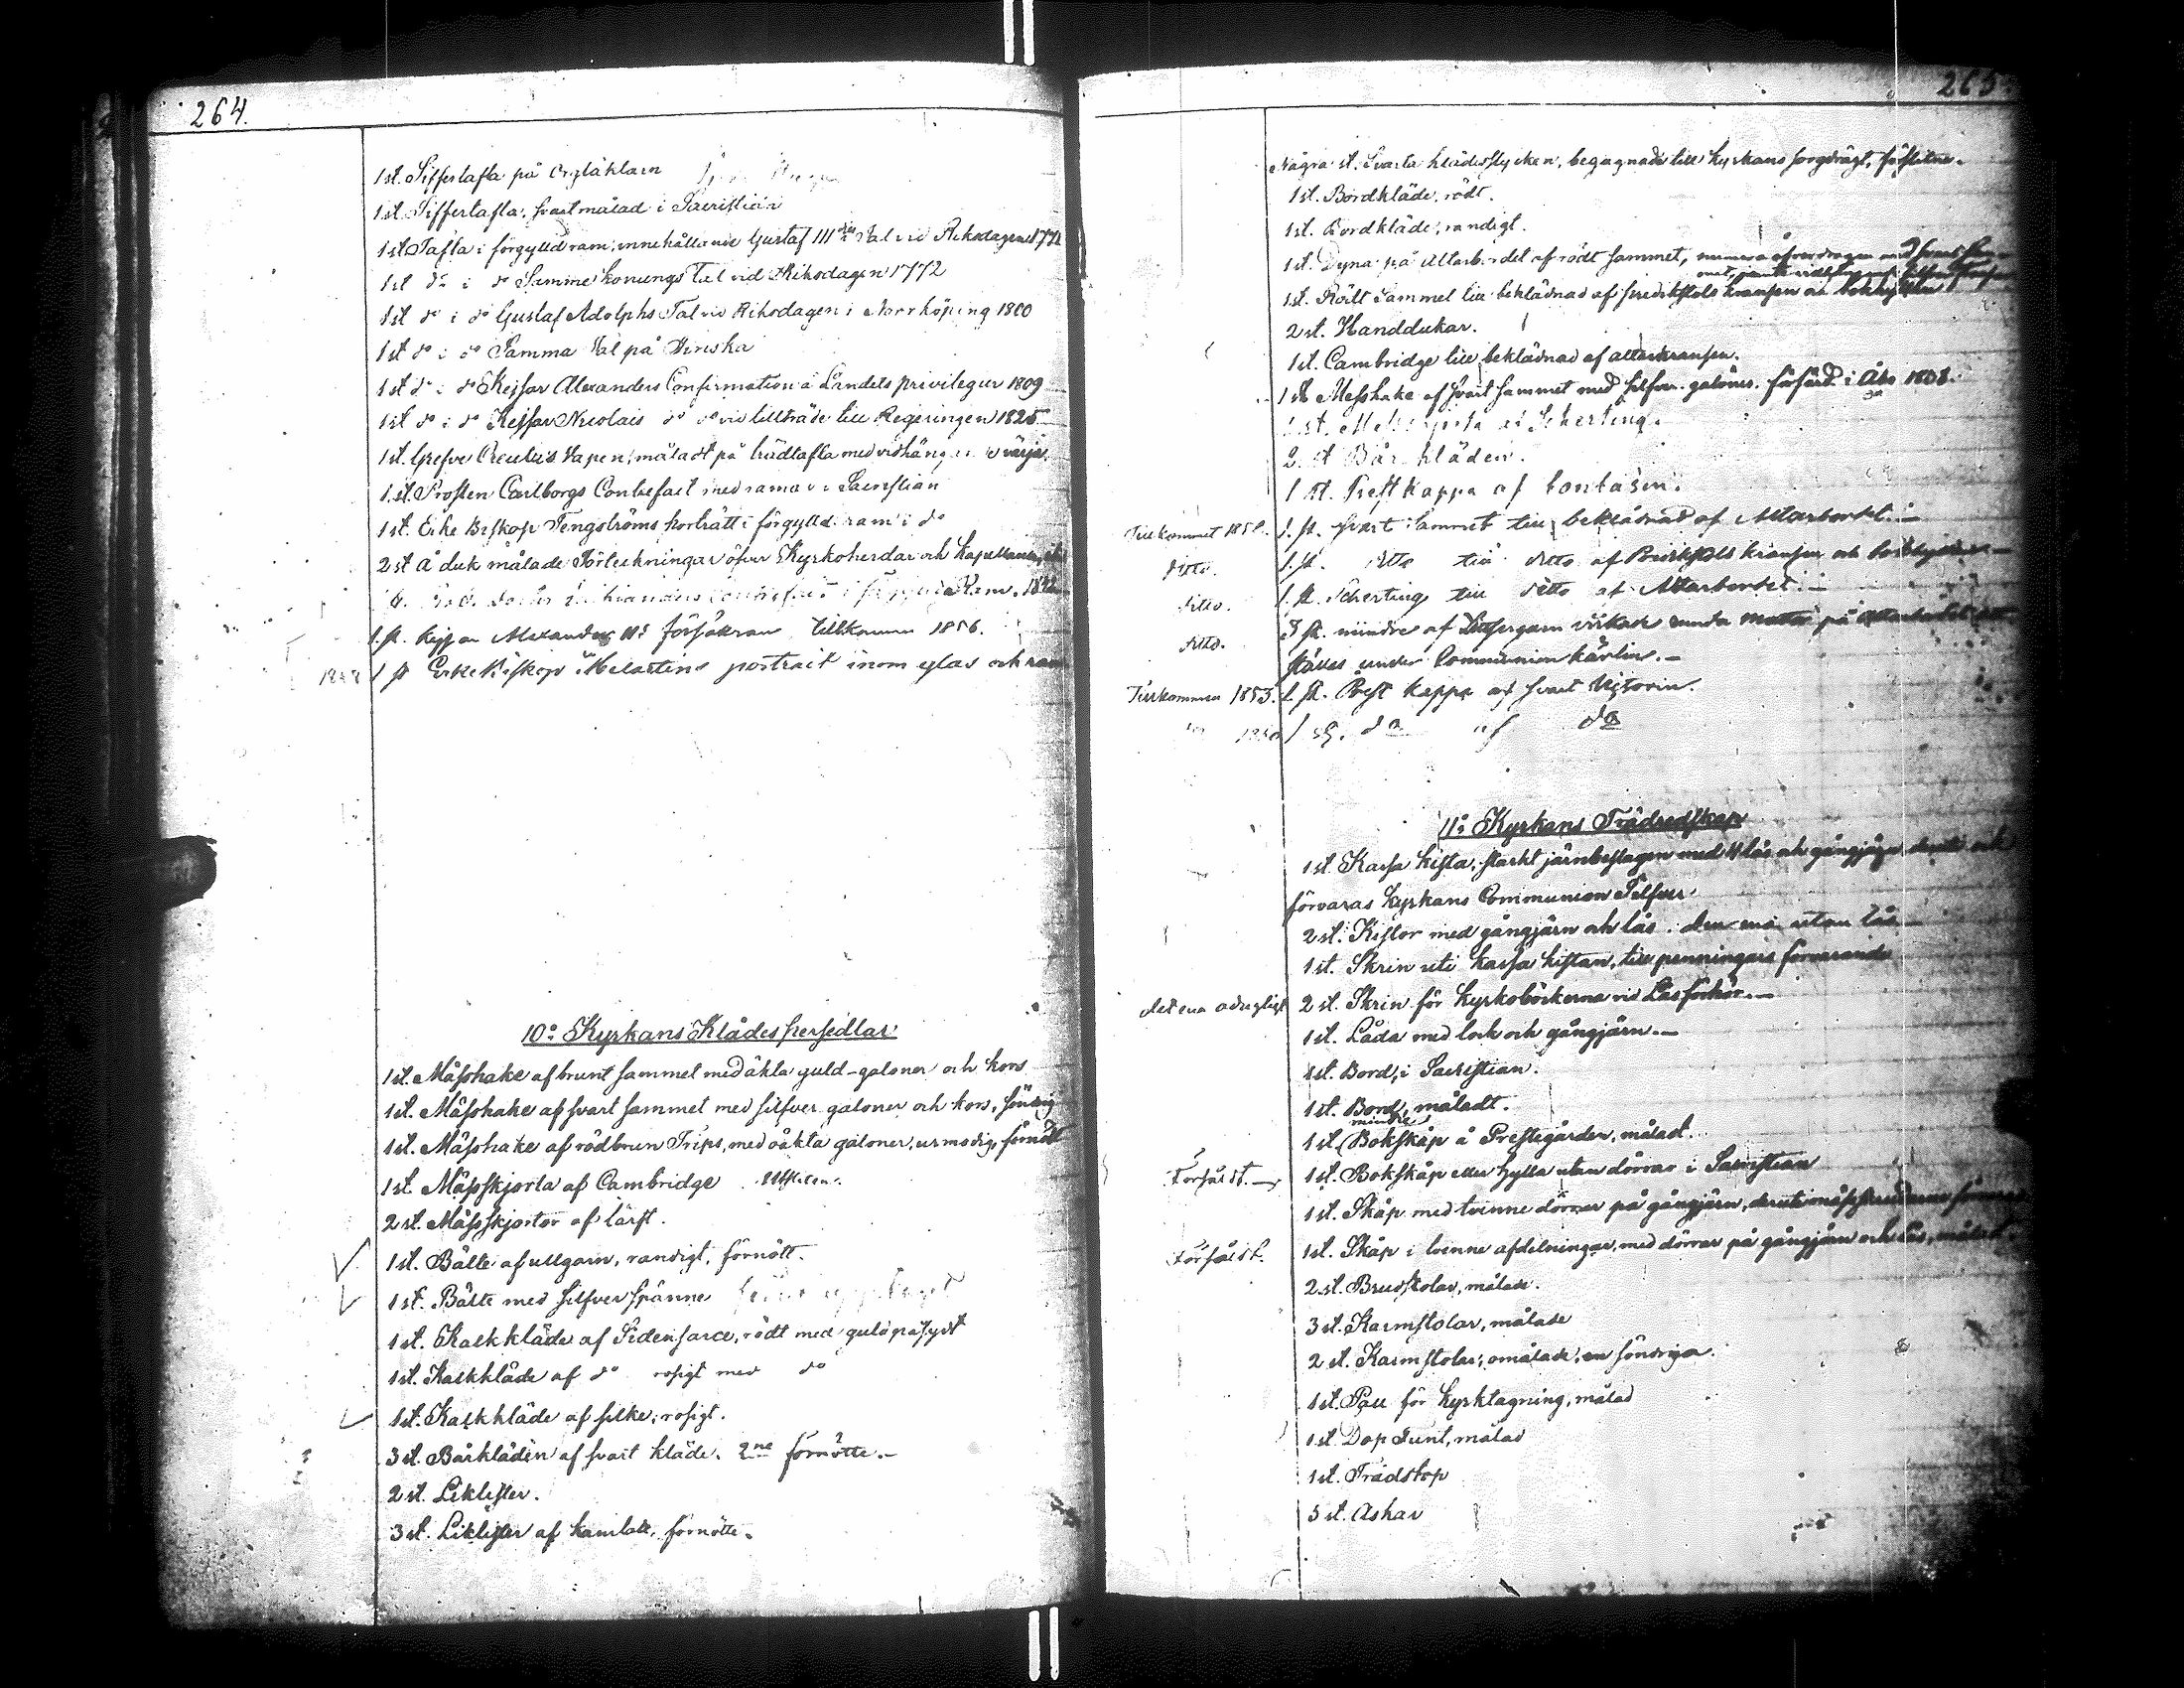 264.
1 st. Siffertafla på Orgläktarn
1 st. Siffertafla, svartmålad i Sacristian
1 st. Tafla i förgylld ram, innehållande Gustaf III des Tal vid Riksdagen 1771
1 st do i do Samme Konungs Tal vid Riksdagen 1772
1 st do i do Gustaf Adolphs Tal vid Riksdagen i Norrköping 1800
1 st do i do Samma Tal på Finska
1 st do i do Kejsar Alexanders Confirmation å Landets privilegier 1809
1 st do i do Kejsar Nicolais do do vid tillträde till Regeringen 1825
1 st. Grefve Creutz's Vapen, måladt på trädtafla med vidhängande värja.
1 st. Prosten Carlborgs Contrefait med ramar i Sacristian
1 st. Erke Biskop Tengströms porträtt i förgylld ram i do
2 st å duk målade Förteckningar öfver Kyrkoherdar och Kapellaner,
Ram.
1. st. Kejsar Alexander II:s försäkran tillkommen 1856.
1 st Erke Biskop Melartins portrait inom glas och ram
10o Kyrkans Klädespersedlar
1 st. Mässhake af brunt sammet med äkta guld-galoner och kors
1 st. Mässhake af svart sammet med silfver galoner och kors, söndrig
1 st. Mässhake af rödbrun Trips, med oäkta galoner, urmodig, förnött
1 st. Mässkjorta af Cambridge
2 st. Mässkjortor af lärft.
1 st. Bälte af ullgarn, randigt, förnött.
1 st. Bälte med silfver spänne
1 st. Kalkkläde af Sidensarce, rödt med guld påsydt
1 st. Kalkkläde af do rosigt med do
1 st. Kalkkläde af silke, rosigt.
3 st. Bårkläden af svart kläde. 2ne förnötte.-
2 st. Liklister.
3 st. Liklister af kamlott, förnötte.
265.
Några st. Svarta klädesstycken, begagnade till kyrkans sorgdrägt, förslitna.
1 st. Bordkläde, rödt.
1 st. Bordkläde, randigt.
1 st. Dyna på Altarbordet af rödt sammet,
1 st. Rödt Sammet till beklädnad af predikstols kransen
2 st. Handdukar.
1 st. Cambridge till beklädnad af altarkransen.
1 st Messhake af svart sammet med silfver galoner. förfärd. i Åbo 1808.
2. st Bår kläden.
1 st. Prestkappa af bombasin.
1. st. svart Sammet till beklädnad af Altarbordet.-
Ditto. 1. st. ditto till ditto af Predikstols kransen och
Ditto. 1. st. Scherting till ditto af Altarbordet.-
Ditto. 3 st. mindre af virkade runda mattor på
ställes under Communion kärlen.-
Tillkommen 1853. 1 st. Prest kappa af svart
1 st. do af do
11o Kyrkans Trädredskap
1 st. Kassa kista, starkt järnbeslagen med 4 lås och gångjärn deruti och
förvaras Kyrkans Communion Silfver
2 st. Kistor med gångjärn och lås. den ena utan lås.
1 st. Skrin uti kassa kistan, till penningars förvarande
det ena odugligt 2 st. Skrin för Kyrkoböckerna vid Läsförhör.-
1 st. Låda med lock och gångjärn.-
1 st. Bord, i Sacristian.
1 st. Bord, måladt.
mindre
1 st. Bokskåp å Prestegården, målad.
Försåldt.- 1 st. Bokskåp eller hylla utan dörrar i Sacristian
1 st. Skåp med tvenne dörrar på gångjärn,
Försåldt. 1 st. Skåp i tvenne afdelningar, med dörrar på gångjärn och lås, målad.
2 st. Brudstolar, målade.
3 st. Karmstolar, målade
2 st. Karmstolar, omålade, en söndrig.
1 st. Pall för kyrktagning, målad
1 st. Dop Funt, målad
1 st. Trädstop
5 st. Askar